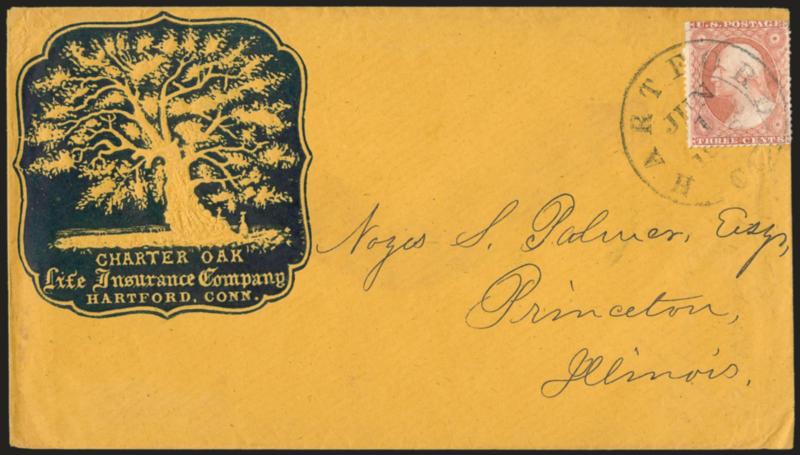 CHARTER OAK
Life Insurance Company
HARTFORD, CONN.
U.S. POSTAGE
THREE CENTS
HARTFORD
JUN
Noyes S. Palmer, Esq,
Princeton,
Illinois.